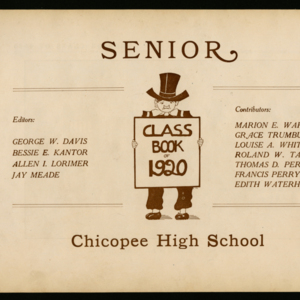 SENIOR
Editors:
GEORGE W. DAVIS
BESSIE E. KANTOR
ALLEN I. LORIMER
JAY MEADE
CLASS
BOOK
OF
1920
Contributors:
MARION E.
GRACE
LOUISE A.
ROLAND W.
THOMAS D.
FRANCIS PERRY
EDITH
Chicopee High School